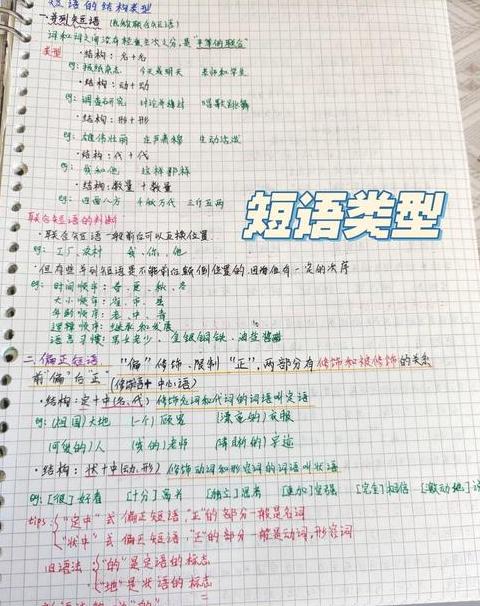 短语的结构类型
一.并列短语 (也叫联合短语)
词和词之间没有轻重主次之分,是"平等的联合"
类型 ·结构: 名+名
eg: 报纸杂志 今天或明天 老师和学生
·结构: 动+动
eg: 调查研究 讨论并通过 唱歌跳舞
·结构: 形+形
eg: 雄伟壮丽 庄严肃穆 生动活泼
·结构: 代+代
eg: 我和他 这样那样
·结构: 数量+数量
eg: 四面八方 千秋万代 三斤五两
短语类型
联合短语的判断
·联合短语一般前后可以互换位置.
eg: 工厂、农村 我、你、他
·但有些并列短语是不能前后颠倒位置的,因为它有一定的次序
eg: 时间顺序: 春、夏、秋、冬
大小顺序: 省、市、县
年龄顺序: 老、中、青
逻辑顺序: 继承和发展
语言习惯: 男女老少、金银铜铁、油盐酱醋
二.偏正短语 "偏"修饰、限制"正",两部分有修饰和被修饰的关系
前"偏"后"正" (修饰语+中心语)
·结构: 定+中(名、代) 修饰名词和代词的词语叫定语
eg: (祖国)大地 (一个)顾客 (漂亮的)衣服
(可爱的)人 (我的)老师 (清晰的)字迹
·结构: 状+中(动、形) 修饰动词和形容词的词语叫状语
eg: [很]好看 [十分]高兴 [独立]思考 [更加]坚强 [完全]相信 [激动地]
tips: "定中"式偏正短语,"正"的部分一般是名词
"状中"式偏正短语,"正"的部分一般是动词,形容词
旧语法: "的"是定语的标志
"地"是状语的标志